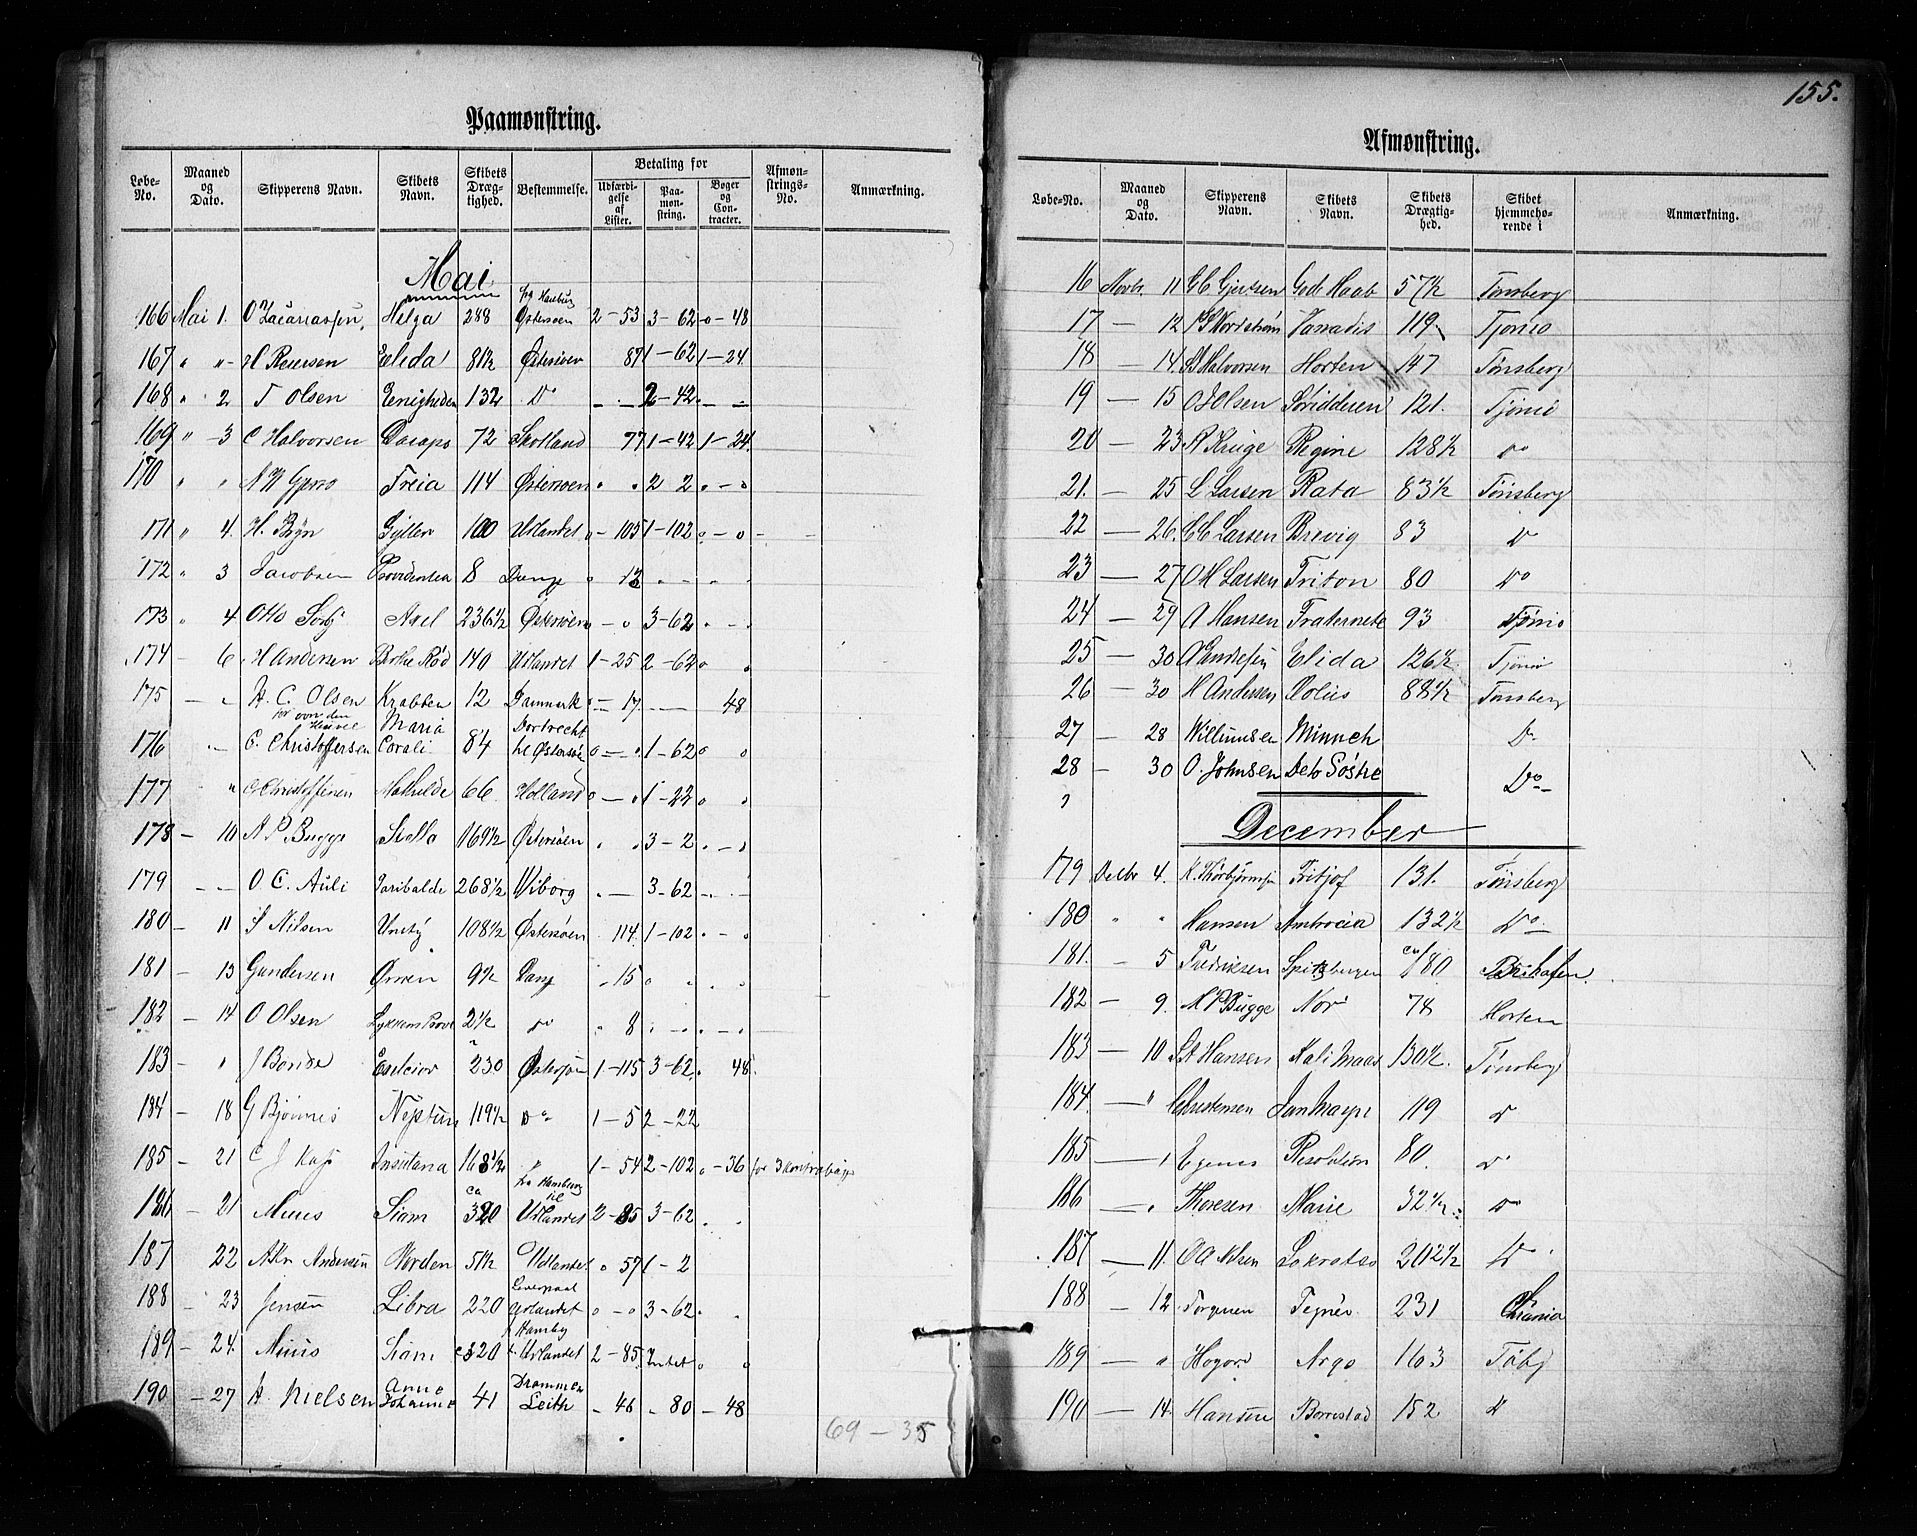 155.
Paamønstring.
Løbe-No. Maaned og Dato. Skipperens Navn. Skibets Navn. Skibets Dræg-tighed. Bestemmelse. Betaling for Udfærdigelse af Lister. Paamønstring. Bøger og Contracter. Afmønstrings-No. Anmærkning.
Mai
166 Mai 1. O Zacariassen, Helga 288 Østersøen 2-53 3-62 0-48
167 " " H Petersen Eleda 81½ 87 1-62 1-24
168 " 2 T Olsen Enigheden 132 Do 2-42
169 " 3 C Halvorsen 72 Skotland 77 1-42 1-24
170 " " Freia 114 Østersøen 2 2
171 " 4. H. Bryn Gyller 100 Udlandet 0-105 1-102 0-0
172 " 3 Jacobsen Providentia 8 12
173 " 4 Otto Axel 236½ Østersøen 3-62
174 - 6 H Andersen Berthe Rød 140 Udlandet 1-25 2-62
175 - " H. C. Olsen Krabben 12 Danmark 17 48
Maria Dortrecht
176 C. Christoffersen Corali 84 til Østersøen 0-0 1-62 0
177 " C Christoffersen Mathilde 66 Holland 0-0 1-22 0
178 - 10 A P Bugge Stella 169½ Østersøen 3-2
179 - - O. C. Auli Garibalde 268½ Wiborg 3-62
180 - 11 S Nilsen Unity 108½ Østersøen 114 1-102
181 - 13 Gundersen Ørnen 9½ 15
182 - 14 O Olsen Lykkens Prøve 2½ Do 8
183 " J Bonde Exelcior 230 Østersøen 1-115 3-62 48
184 - 18 G Bjønnes Neptun 119½ Do 1-5 2-22
185 - 21 C J Insulana 168½ " 1-54 2-102 0-36 for 3 kontrabøger
fra Hamburg til
186 - 21 Muus Siam ca 320 Udlandet 2-85 3-62
187 22 Andersen Norden 51½ Udlandet 57 1-2
Liverpool
188 - 23 Jensen Libra 220 Udlandet 0-0 3-62
189 - 24. Muus Siam c 320 Udlandet 2-85 Intet
Anne Drammen
190 - 27 H. Nielsen Johanne 41 Leith 46 80 48
69-35
Afmønstring.
Løbe-No. Maaned og Dato. Skipperens Navn. Skibets Navn. Skibets Drægtighed. Skibet hjemmehørende i Anmærkning.
16 Novb. 11 Gjertsen Gode Haab 57½ Tønsberg
17 - 12 Nordstrøm Vanadis 119 Tjømø
18 - 14. Halvorsen Horten 147 Tønsberg
19 - 15 O J Olsen 121. Tjømø
20 - 23 Kruge Regine 128½ Do
21. - 25 L Larsen Rata 83½ Tønsberg
22 - 26. C C Larsen Brevig 83 Do
23 - 27 O H Larsen Triton 80 Do
24 - 29 A Hansen Fraternite 93 Tjømø
25 - 30 Elida 126½ Tjømø
26 - 30 H Andersen Eolus 88½ Tønsberg
27 - 28 Willumsen Münnch Do
28 - 30 O. Johnsen Deto Søstre Do
December
179 Decbr 4. K. Thorbjørnsen Fritjof 131. Tønsberg
180 " " Hansen Ambrosia 132½ Do
181. - 5 Fredriksen Spitzbergen ca 180
182 - 9. A P Bugge Nor 78 Horten
183 - 10 Hansen Kali Maas 130½ Tønsberg
184. - " Christensen Jan Mayn 119 Do
185 - " Egenes Resolution 80. Do
186 - " Thoresen Marie 32½ Do
187 - 11. O A Nilsen Sokrates 202½ Do
188 - 12 Torgersen Tegner 231 Chiania
189 - " Argo 163 Tøbg
190 - 14. Hansen Borrestad 152 Do